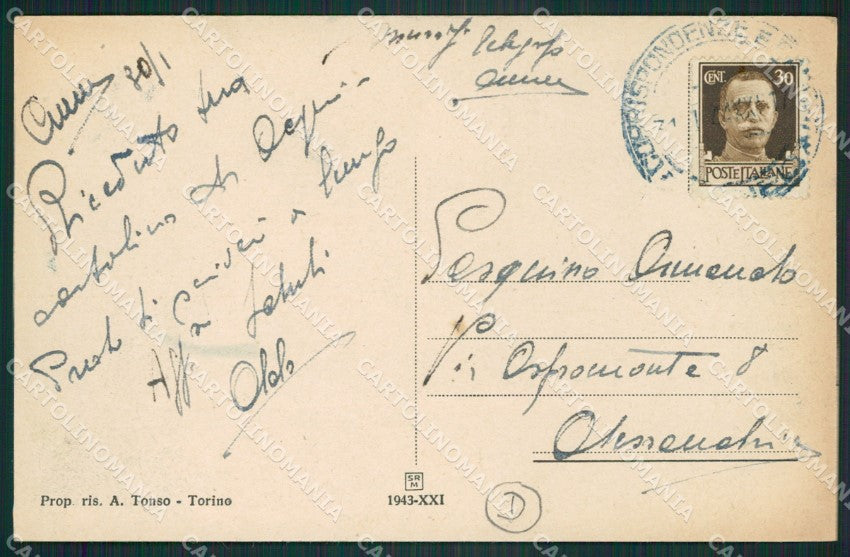 30/1
Ricevuto tua
cartolina di
Presto ti scriverò a lungo
Aff saluti
Aldo
CORRISPONDENZE E
CENT. 30
POSTE ITALIANE
Pasquino Armando
Via Aspromonte 8
Alessandria
Prop. ris. A. Tonso - Torino
SR
M
1943-XXI
D
CARTOLINOMANIA